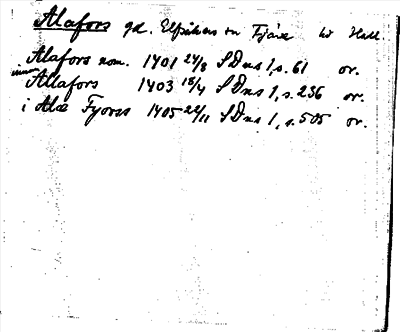 Alafors gd. Elfsåkers sn Fjäre hd Hall.
Alafors nom. 1401 24/8 SDns 1, s. 61 or.
innan Allafors 1403 18/4 SDns 1, s. 236 or.
i Alæ Fyorss 1405 22/11 SDns 1, s. 505 or.